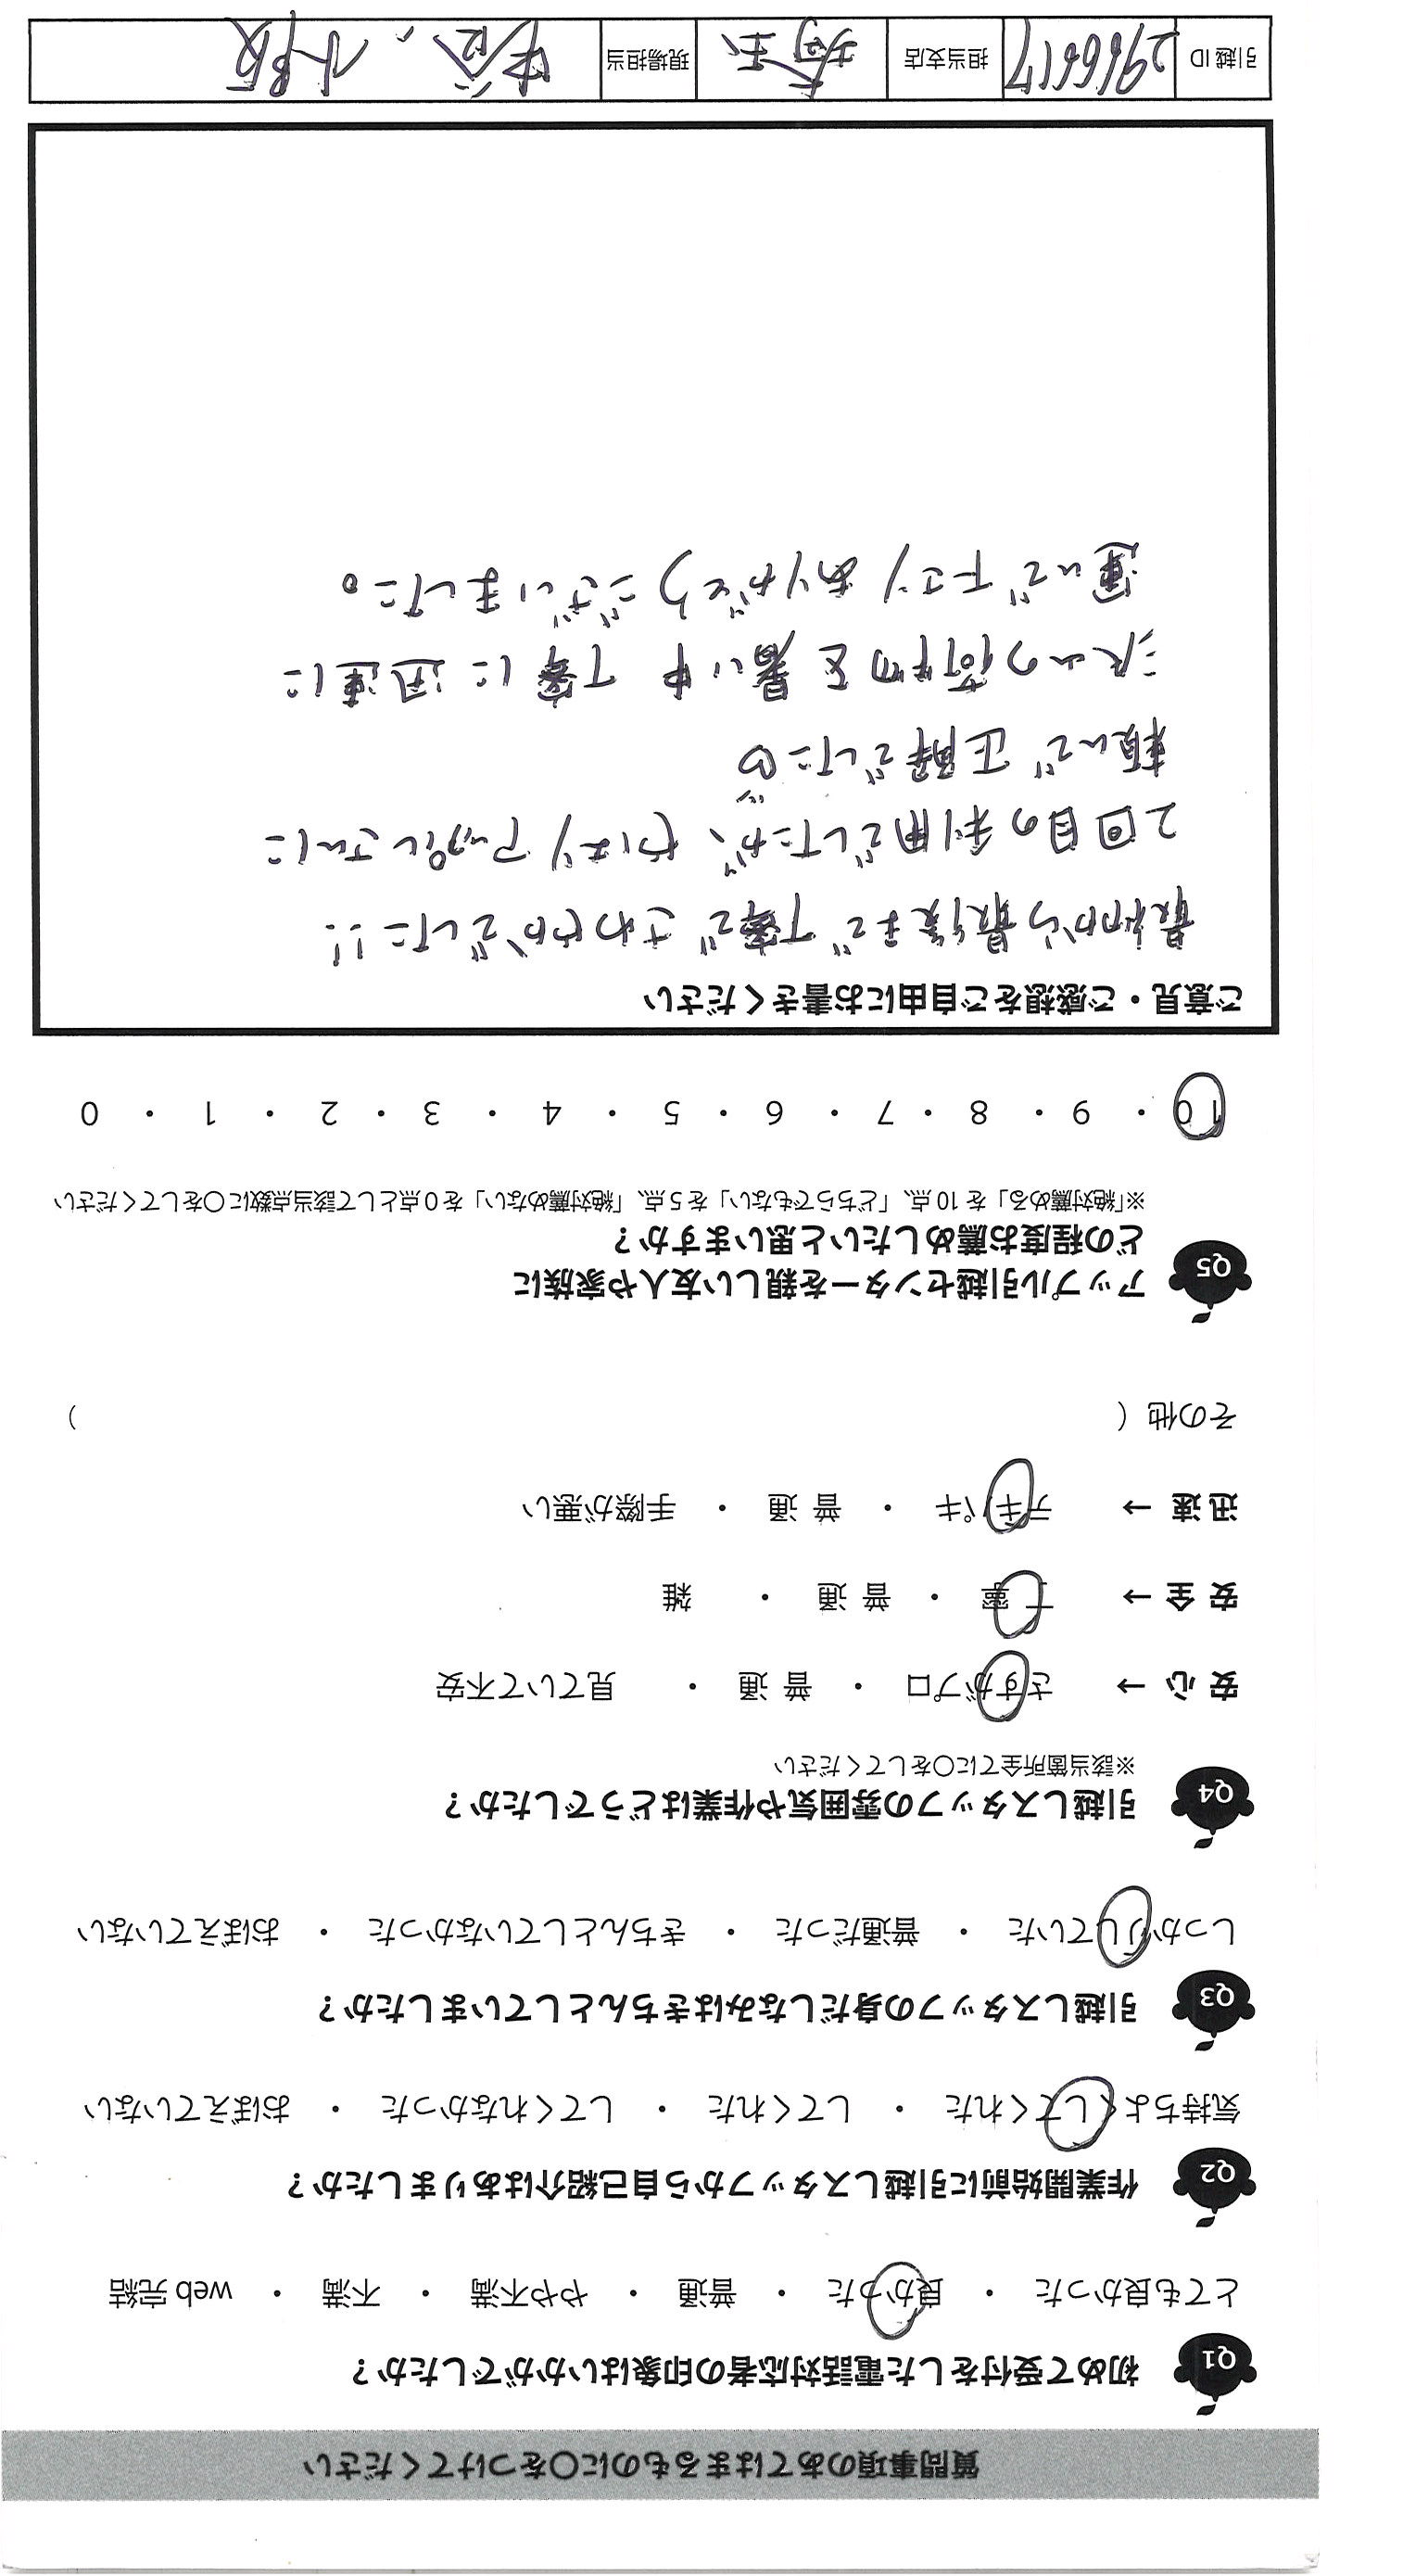 質問事項のあてはまるものに○をつけてください
Q1 初めて受付をした電話対応者の印象はいかがでしたか？
とても良かった ・ 良かった ・ 普通 ・ やや不満 ・ 不満 ・ web 完結
Q2 作業開始前に引越しスタッフから自己紹介はありましたか？
気持ちよくしてくれた ・ してくれた ・ してくれなかった ・ おぼえていない
Q3 引越しスタッフの身だしなみはきちんとしていましたか？
しっかりしていた ・ 普通だった ・ きちんとしていなかった ・ おぼえていない
Q4 引越しスタッフの雰囲気や作業はどうでしたか？
※該当箇所全てに○をしてください
安 心 → さすがプロ ・ 普 通 ・ 見ていて不安
安 全 → 丁 寧 ・ 普 通 ・ 雑
迅 速 → テキパキ ・ 普 通 ・ 手際が悪い
その他（ ）
Q5 アップル引越センターを親しい友人や家族に
どの程度お薦めしたいと思いますか？
※「絶対薦める」を 10 点、「どちらでもない」を 5 点、「絶対薦めない」を 0 点として該当点数に○をしてください
10 ・ 9 ・ 8 ・ 7 ・ 6 ・ 5 ・ 4 ・ 3 ・ 2 ・ 1 ・ 0
ご意見・ご感想をご自由にお書きください
最初から最後まで丁寧でさわやかでした!!
2回目の利用でしたが、やはりアップルさんに
頼んで正解でした
沢山の荷物を暑い中丁寧に迅速に
運んで下さりありがとうございました。
引越 ID 2966617 担当支店 埼玉 現場担当